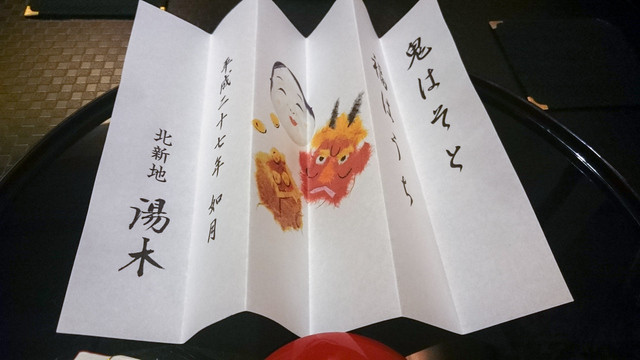 鬼はそと
福はうち
平成二十七年 如月
北新地
湯木